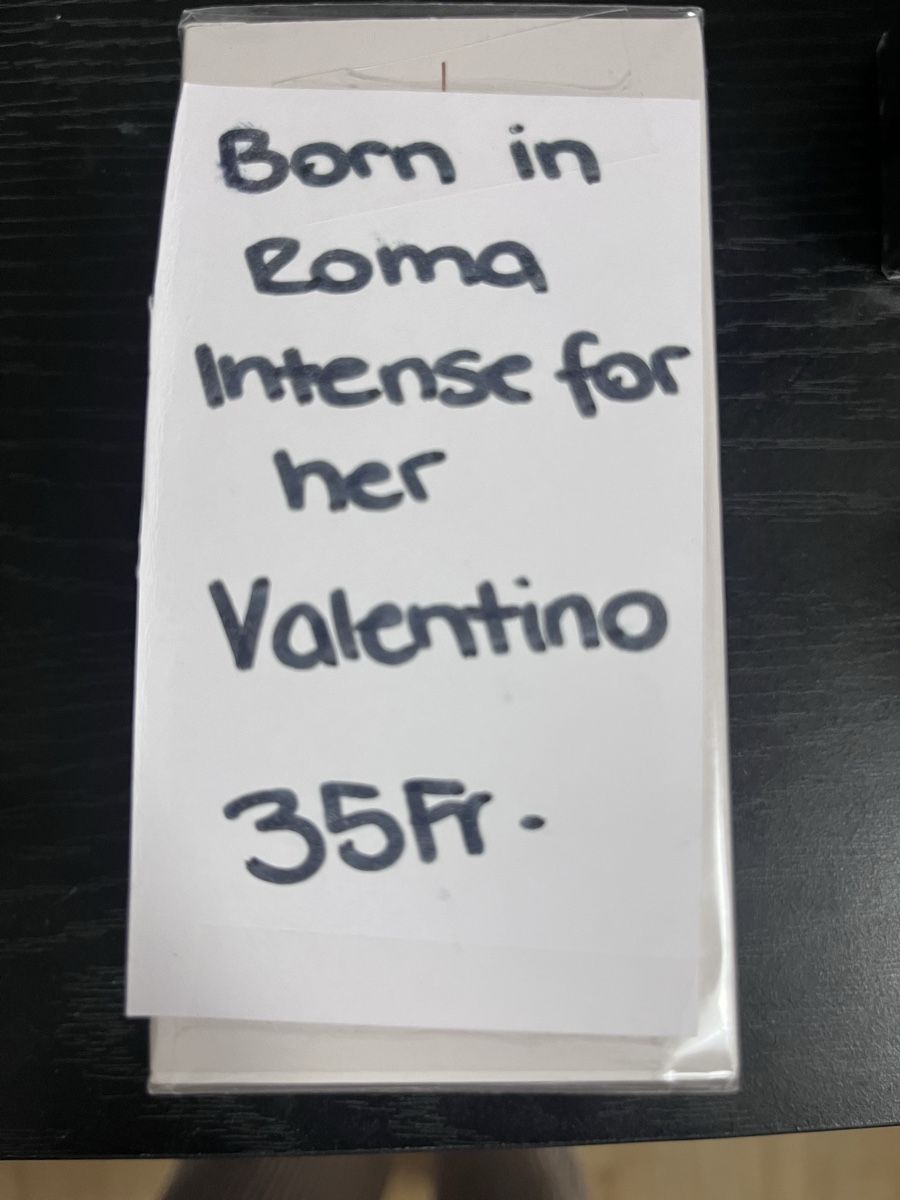 Born in
Roma
Intense for
her
Valentino
35Fr.